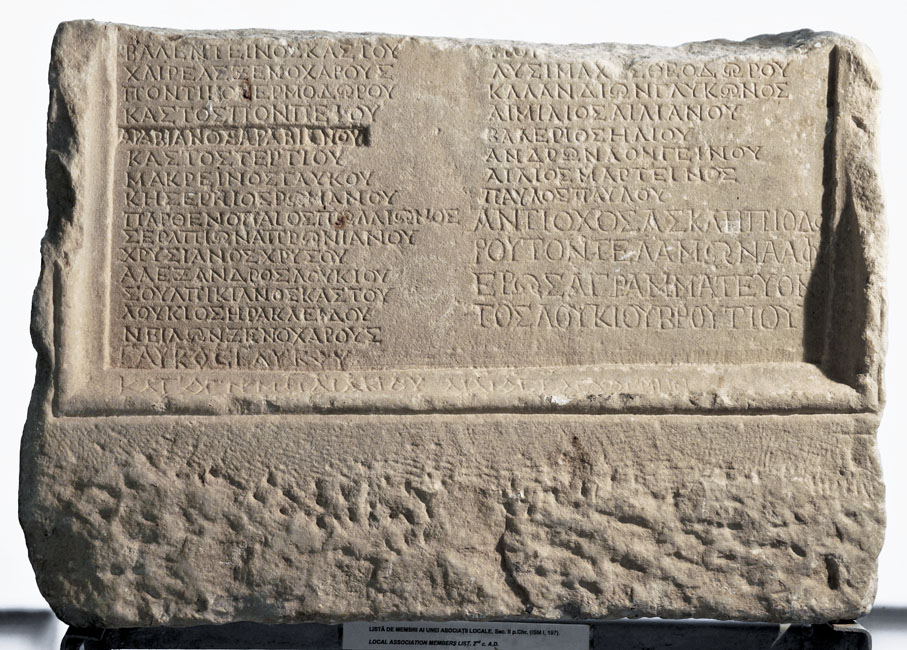 ΒΑΛΕΝΤΕΙΝΟΣΚΑΣΤΟΥ
ΧΑΙΡΕΑΣΞΕΝΟΧΑΡΟΥΣ
ΠΟΝΤΙΚΟΣΕΡΜΟΔΩΡΟΥ
ΚΑΣΤΟΣΠΟΝΠΕΙΟΥ
ΑΡΑΒΙΑΝΟΣΑΡΑΒΙΑΝΟΥ
ΚΑΣΤΟΣΤΕΡΤΙΟΥ
ΜΑΚΡΕΙΝΟΣΓΛΥΚΟΥ
ΚΗΣΕΡΝΙΟΣΡΩΜΑΝΟΥ
ΠΑΡΘΕΝΟΠΑΙΟΣΠΩΛΛΙΩΝΟΣ
ΣΕΡΑΠΙΩΝΑΠΡΩΝΙΑΝΟΥ
ΧΡΥΣΙΑΝΟΣΧΡΥΣΟΥ
ΑΛΕΞΑΝΔΡΟΣΛΟΥΚΙΟΥ
ΣΟΥΛΠΙΚΙΑΝΟΣΚΑΣΤΟΥ
ΛΟΥΚΙΟΣΗΡΑΚΛΕΙΔΟΥ
ΝΕΙΛΩΝΞΕΝΟΧΑΡΟΥΣ
ΓΛΥΚΟΣΓΛΥΚΟΥ
ΛΥΣΙΜΑΧΟΣΘΕΟΔΩΡΟΥ
ΚΑΛΑΝΔΙΩΝΓΛΥΚΩΝΟΣ
ΑΙΜΙΛΙΟΣΑΙΛΙΑΝΟΥ
ΒΑΛΕΡΙΟΣΗΛΙΟΥ
ΑΝΔΡΩΝΛΟΝΓΕΙΝΟΥ
ΑΙΛΙΟΣΜΑΡΤΕΙΝΟΣ
ΠΑΥΛΟΣΠΑΥΛΟΥ
ΑΝΤΙΟΧΟΣΑΣΚΛΗΠΙΟΔΩ
ΡΟΥΤΟΝΤΕΛΑΜΩΝΑΔΩ
ΕΡΩΣΑΓΡΑΜΜΑΤΕΥΟΝ
ΤΟΣΛΟΥΚΙΟΥΒΡΟΥΤΙΟΥ
LISTĂ DE MEMBRI AI UNEI ASOCIAŢII LOCALE, Sec. II p.Chr. (ISM I, 197).
LOCAL ASSOCIATION MEMBERS LIST, 2nd c. A.D.